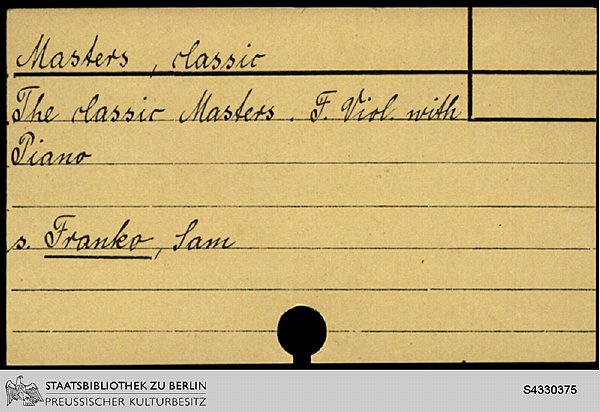 Masters, classic
The classic Masters. F. Viol. with
Piano
s. Franko, Sam
STAATSBIBLIOTHEK ZU BERLIN
PREUSSISCHER KULTURBESITZ
S4330375